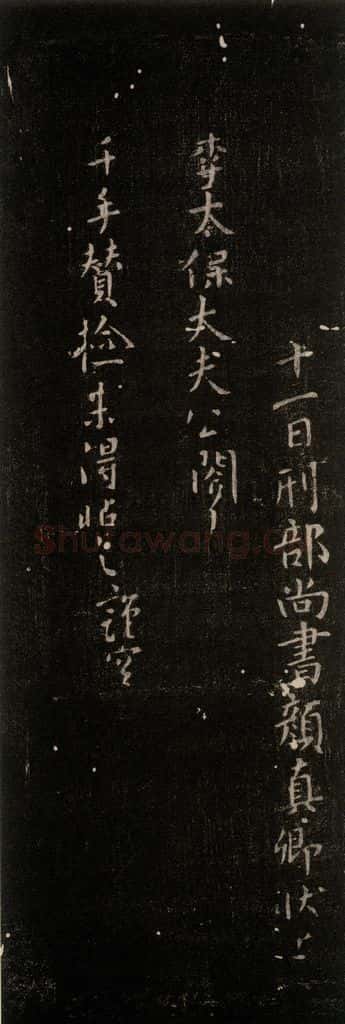 十一日刑部尚書顏真卿狀上
李太保大夫公閤下
千手贊檢未得帖之謹空
Shufawang.c